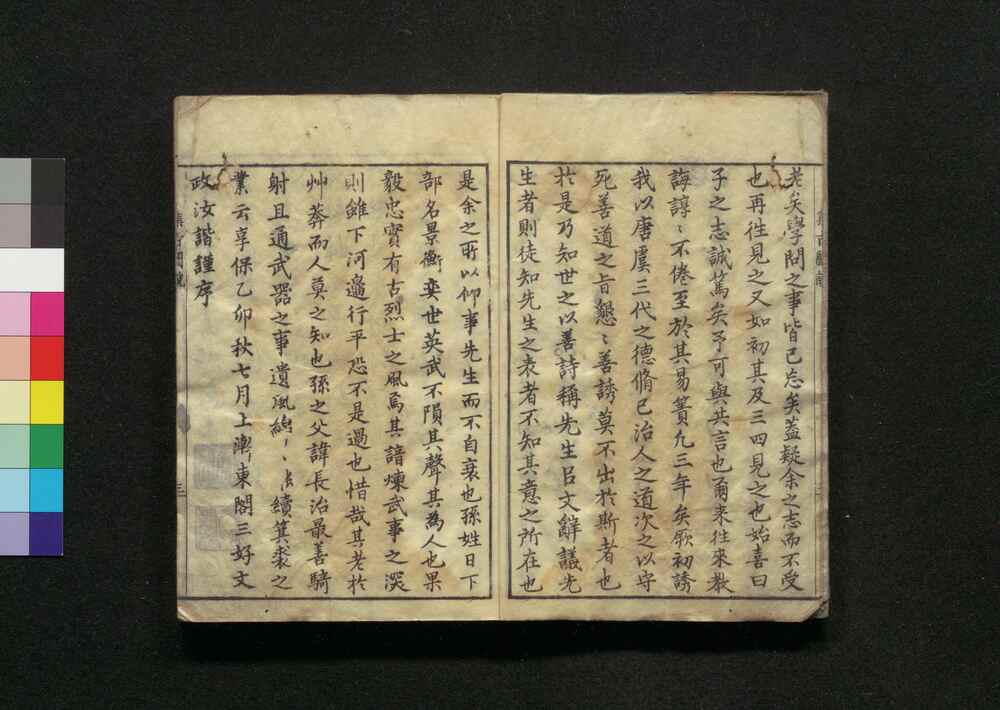 老矣學問之事皆已忘矣蓋疑余之志而不受
也再徃見之又如初其及三四見之也始喜曰
子之志誠篤矣予可與共言也爾来徃來教
誨諄〻不倦至於其易簀凢三年矣厥初誘
我以唐虞三代之德脩已治人之道次之以守
死善道之旨懇〻善誘莫不出扵斯者也
扵是乃知世之以善詩稱先生吕文辭議先
生者則徒知先生之表者不知其意之所在也
是余之所以仰事先生而不自衰也孫姓日下
部名景衡奕世英武不隕其聲其為人也果
毅忠實有古烈士之風焉其諳煉武事之深
則雖下河邉行平恐不是過也惜哉其老扵
艸莽而人莫之知也孫之父諱長治最善騎
射且通武器之事遺風綿〻續箕裘之
業云享保乙卯秋七月上澣東閣三好文
政汝諧謹序
三